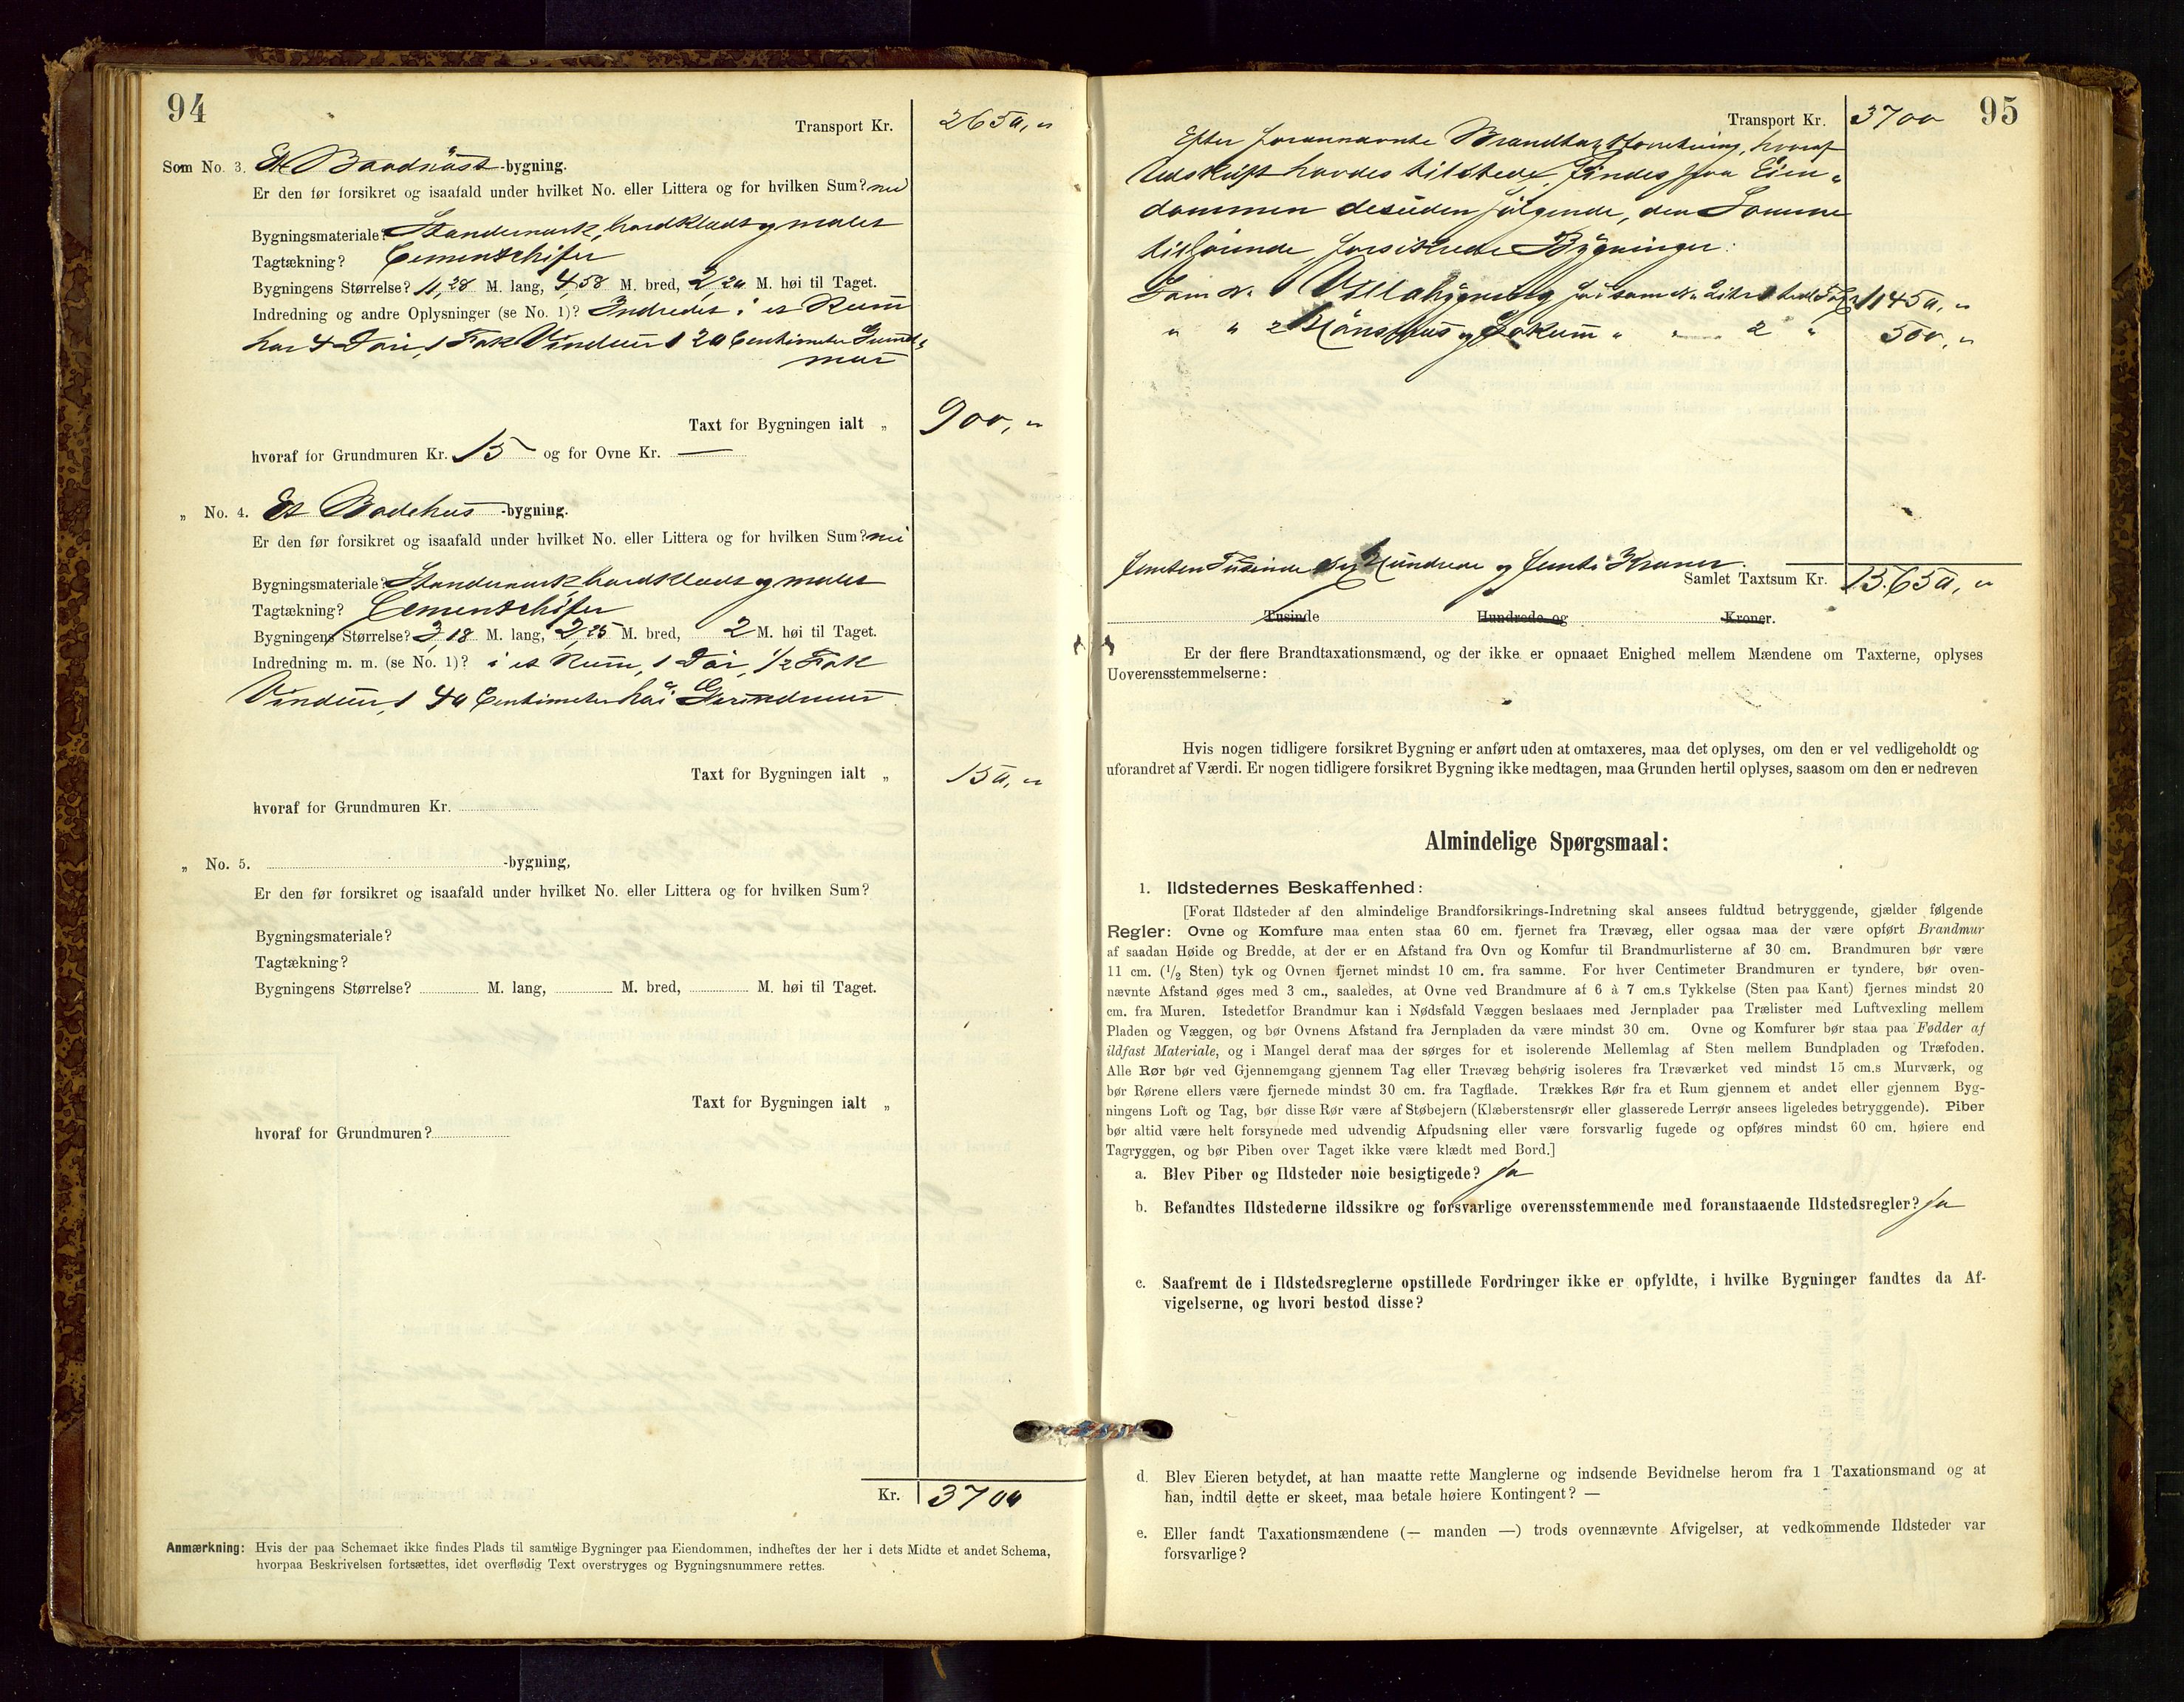 94
Transport Kr. 2650,"
Som No. 3. Et Baadnøst -bygning.
Er den før forsikret og isaafald under hvilket No. eller Littera og for hvilken Sum? nei
Bygningsmateriale? Standerverk, bordklædt og malet
Tagtækning? Cementskifer
Bygningens Størrelse? 11,28 M. lang, 4,58 M. bred, 2,20 M. høi til Taget.
Indredning og andre Oplysninger (se No. 1)? Indredet i et Rum
har 4 Døre, 1 Fak Vinduer 1 20 Centimeter Grund-
mur
Taxt for Bygningen ialt „ 900,"
hvoraf for Grundmuren Kr. 15 og for Ovne Kr. —
„ No. 4. Et Badehus -bygning.
Er den før forsikret og isaafald under hvilket No. eller Littera og for hvilken Sum? nei
Bygningsmateriale? Standerverk, bordklædt og malet
Tagtækning? Cementskifer
Bygningens Størrelse? 3,18 M. lang, 2,25 M. bred, 2 M. høi til Taget.
Indredning m. m. (se No. 1)? i et Rum, 1 Dør, 1/2 Fak
Vinduer, 1 40 Centimeter høi Grundmur
Taxt for Bygningen ialt „ 150,"
hvoraf for Grundmuren Kr.
„ No. 5. -bygning,
Er den før forsikret og isaafald under hvilket No. eller Littera og for hvilken Sum?
Bygningsmateriale?
Tagtækning?
Bygningens Størrelse? M. lang, M. bred, M. høi til Taget.
Taxt for Bygningen ialt „
hvoraf for Grundmuren?
Kr. 3700
Anmærkning: Hvis der paa Schemaet ikke findes Plads til samtlige Bygninger paa Eiendommen, indheftes der her i dets Midte et andet Schema,
hvorpaa Beskrivelsen fortsættes, idet overflødig Text overstryges og Bygningsnummere rettes.
95
Transport Kr. 3700
Efter forannævnte Brandtaxtforretning, hvoraf
Udskrift havdes tilstede, findes paa Eien-
dommen desuden følgende, den Samme
tilhørende, forsikrede Bygninger:
Som No 1 Villabygning før som No 1 11450,"
" " 2 Hønsehus og " 2 " 500,"
femten Tusinde sex Hundrede og femti Kroner.
Samlet Taxtsum Kr. 15.650,"
Tusinde Hundrede og Kroner.
Er der flere Brandtaxationsmænd, og der ikke er opnaaet Enighed mellem Mændene om Taxterne, oplyses
Uoverensstemmelserne:
Hvis nogen tidligere forsikret Bygning er anført uden at omtaxeres, maa det oplyses, om den er vel vedligeholdt og
uforandret af Værdi. Er nogen tidligere forsikret Bygning ikke medtagen, maa Grunden hertil oplyses, saasom om den er nedreven
Almindelige Spørgsmaal:
1. Ildstedernes Beskaffenhed:
[Forat Ildsteder af den almindelige Brandforsikrings-Indretning skal ansees fuldtud betryggende, gjælder følgende
Regler: Ovne og Komfure maa enten staa 60 cm. fjernet fra Trævæg, eller ogsaa maa der være opført Brandmur
af saadan Høide og Bredde, at der er en Afstand fra Ovn og Komfur til Brandmurlisterne af 30 cm. Brandmuren bør være
11 cm. (1/2 Sten) tyk og Ovnen fjernet mindst 10 cm. fra samme. For hver Centimeter Brandmuren er tyndere, bør oven-
nævnte Afstand øges med 3 cm., saaledes, at Ovne ved Brandmure af 6 à 7 cm.s Tykkelse (Sten paa Kant) fjernes mindst 20
cm. fra Muren. Istedetfor Brandmur kan i Nødsfald Væggen beslaaes med Jernplader paa Trælister med Luftvexling mellem
Pladen og Væggen, og bør Ovnens Afstand fra Jernpladen da være mindst 30 cm. Ovne og Komfurer bør staa paa Fødder af
ildfast Materiale, og i Mangel deraf maa der sørges for et isolerende Mellemlag af Sten mellem Bundpladen og Træfoden.
Alle Rør bør ved Gjennemgang gjennem Tag eller Trævæg behørig isoleres fra Træværket ved mindst 15 cm.s Murværk, og
bør Rørene ellers være fjernede mindst 30 cm. fra Tagflade. Trækkes Rør fra et Rum gjennem et andet eller gjennem Byg-
ningens Loft og Tag, bør disse Rør være af Støbejern (Klæberstensrør eller glasserede Lerrør ansees ligeledes betryggende). Piber
bør altid være helt forsynede med udvendig Afpudsning eller være forsvarlig fugede og opføres mindst 60 cm. høiere end
Tagryggen, og bør Piben over Taget ikke være klædt med Bord.]
a. Blev Piber og Ildsteder nøie besigtigede? Ja
b. Befandtes Ildstederne ildssikre og forsvarlige overensstemmende med foranstaaende Ildstedsregler? Ja
c. Saafremt de i Ildstedsreglerne opstillede Fordringer ikke er opfyldte, i hvilke Bygninger fandtes da Af-
vigelserne, og hvori bestod disse?
d. Blev Eieren betydet, at han maatte rette Manglerne og indsende Bevidnelse herom fra 1 Taxationsmand og at
han, indtil dette er skeet, maa betale høiere Kontingent? —
e. Eller fandt Taxationsmændene (— manden —) trods ovennævnte Afvigelser, at vedkommende Ildsteder var
forsvarlige?